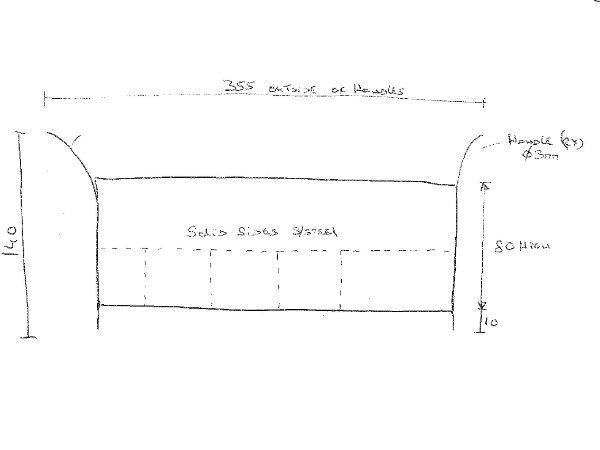 355 OUTSIDE OF HANDLES
HANDLE (2x)
Ø3mm
Solid Sides S/STEEL
140
80 HIGH
10